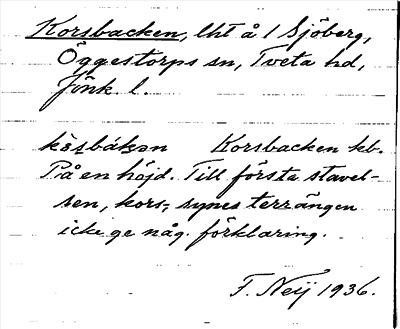 Korsbacken, lht å 1 Sjöberg,
Öggestorps sn, Tveta hd,
Jönk. l.
Korsbacken kb.
På en höjd. Till första stavel-
sen, kors-, synes terrängen
icke ge någ. förklaring.
F. Neij 1936.